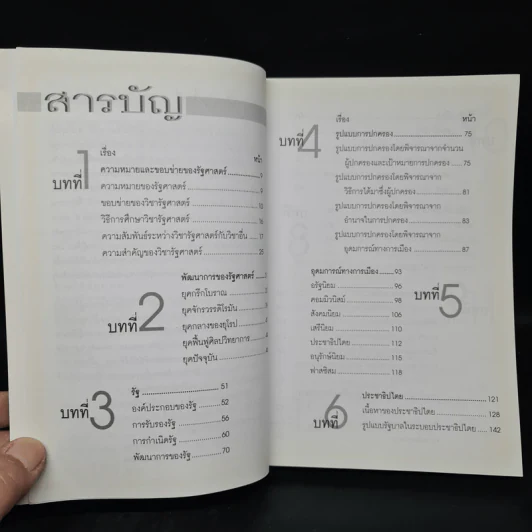 สารบัญ
เรื่อง
หน้า
บทที่ 1
ความหมายและขอบข่ายของรัฐศาสตร์
ความหมายของรัฐศาสตร์
ขอบข่ายของวิชารัฐศาสตร์
วิธีการศึกษาวิชารัฐศาสตร์
ความสัมพันธ์ระหว่างวิชารัฐศาสตร์กับวิชาอื่น
ความสำคัญของวิชารัฐศาสตร์
บทที่ 2
พัฒนาการของรัฐศาสตร์
ยุคกรีกโบราณ
ยุคจักรวรรดิโรมัน
ยุคกลางของยุโรป
ยุคฟื้นฟูศิลปวิทยาการ
ยุคปัจจุบัน
บทที่ 3
รัฐ 51
องค์ประกอบของรัฐ 52
การรับรองรัฐ 56
การกำเนิดรัฐ 60
พัฒนาการของรัฐ 70
เรื่อง หน้า
บทที่ 4
รูปแบบการปกครอง 75
รูปแบบการปกครองโดยพิจารณาจากจำนวน
ผู้ปกครองและเป้าหมายการปกครอง 75
รูปแบบการปกครองโดยพิจารณาจาก
วิธีการได้มาซึ่งผู้ปกครอง 81
รูปแบบการปกครองโดยพิจารณาจาก
อำนาจในการปกครอง 83
รูปแบบการปกครองโดยพิจารณาจาก
อุดมการณ์ทางการเมือง 87
บทที่ 5
อุดมการณ์ทางการเมือง 93
อรัฐนิยม 96
คอมมิวนิสม์ 98
สังคมนิยม 106
เสรีนิยม 110
ประชาธิปไตย 112
อนุรักษ์นิยม 115
ฟาสซิสม 118
บทที่ 6
ประชาธิปไตย 121
เนื้อหาของประชาธิปไตย 128
รูปแบบรัฐบาลในระบอบประชาธิปไตย 142